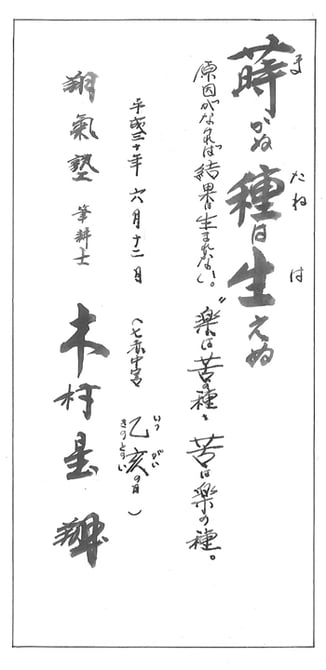 蒔かぬ種は生えぬ
ま たね は
原因がなければ結果は生まれない。〝楽は苦の種、苦は楽の種。
平成三十年 六月十二日 (七赤中宮 乙亥の日)
いつ がい
翔氣塾 筆耕士 木村星翔